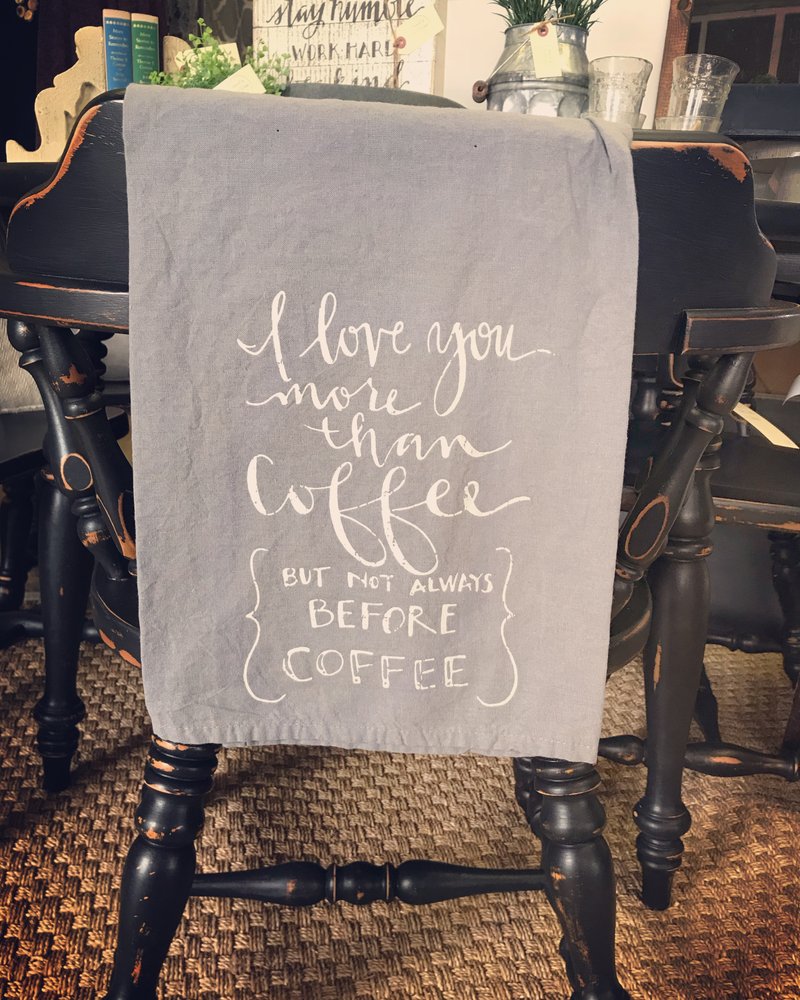 stay humble
WORK HARD
I love you
more
than
Coffee
{BUT NOT ALWAYS
BEFORE
COFFEE}